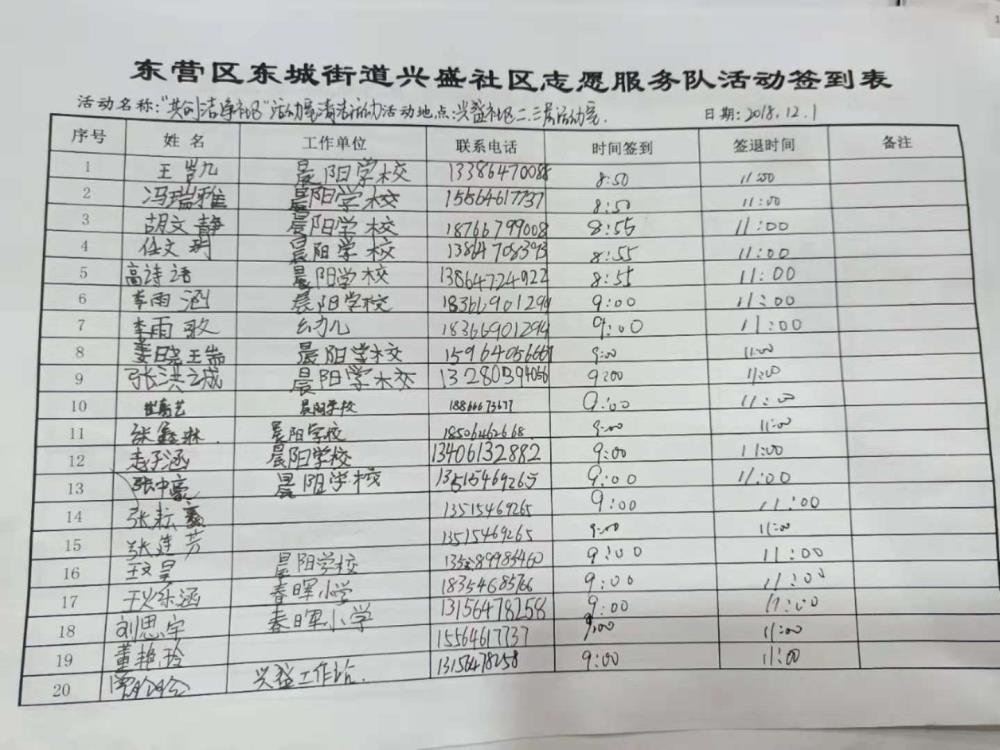 东营区东城街道兴盛社区志愿服务队活动签到表
活动名称:"共创洁净社区"活动室清洁活动 活动地点:兴盛社区二、三层活动室. 日期:2018.12.1
序号 姓名 工作单位 联系电话 时间签到 签退时间 备注
1 王 九 晨阳学校 13386470088 8:50 11:00
2 冯瑞雅 晨阳学校 15564617737 8:50 11:00
3 胡文静 晨阳学校 18766799008 8:55 11:00
4 任文 晨阳学校 13864708393 8:55 11:00
5 高诗语 晨阳学校 13864724922 8:55 11:00
6 李雨涵 晨阳学校 18366901294 9:00 11:00
7 李雨歌 幼儿 18366901294 9:00 11:00
8 晨阳学校 15964056669 9:00 11:00
9 张洪诚 晨阳学校 13280394056 9:00 11:00
10 晨阳学校 18866673677 9:00 11:00
11 张鑫琳. 晨阳学校 18506462668 9:00 11:00
12 子涵 晨阳学校 13406132882 9:00 11:00
13 张中豪 晨阳学校 13515469265 9:00 11:00
14 张耘 13515469265 9:00 11:00
15 张建芳 13515469265 9:00 11:00
16 王文昊 晨阳学校 9:00 11:00
17 涵 春晖小学 18354685766 9:00 11:00
18 刘思宇 春晖小学 13156478258 9:00 11:00
19 董艳玲 15564617737 9:00 11:00
20 兴盛工作站. 13156478258 9:00 11:00